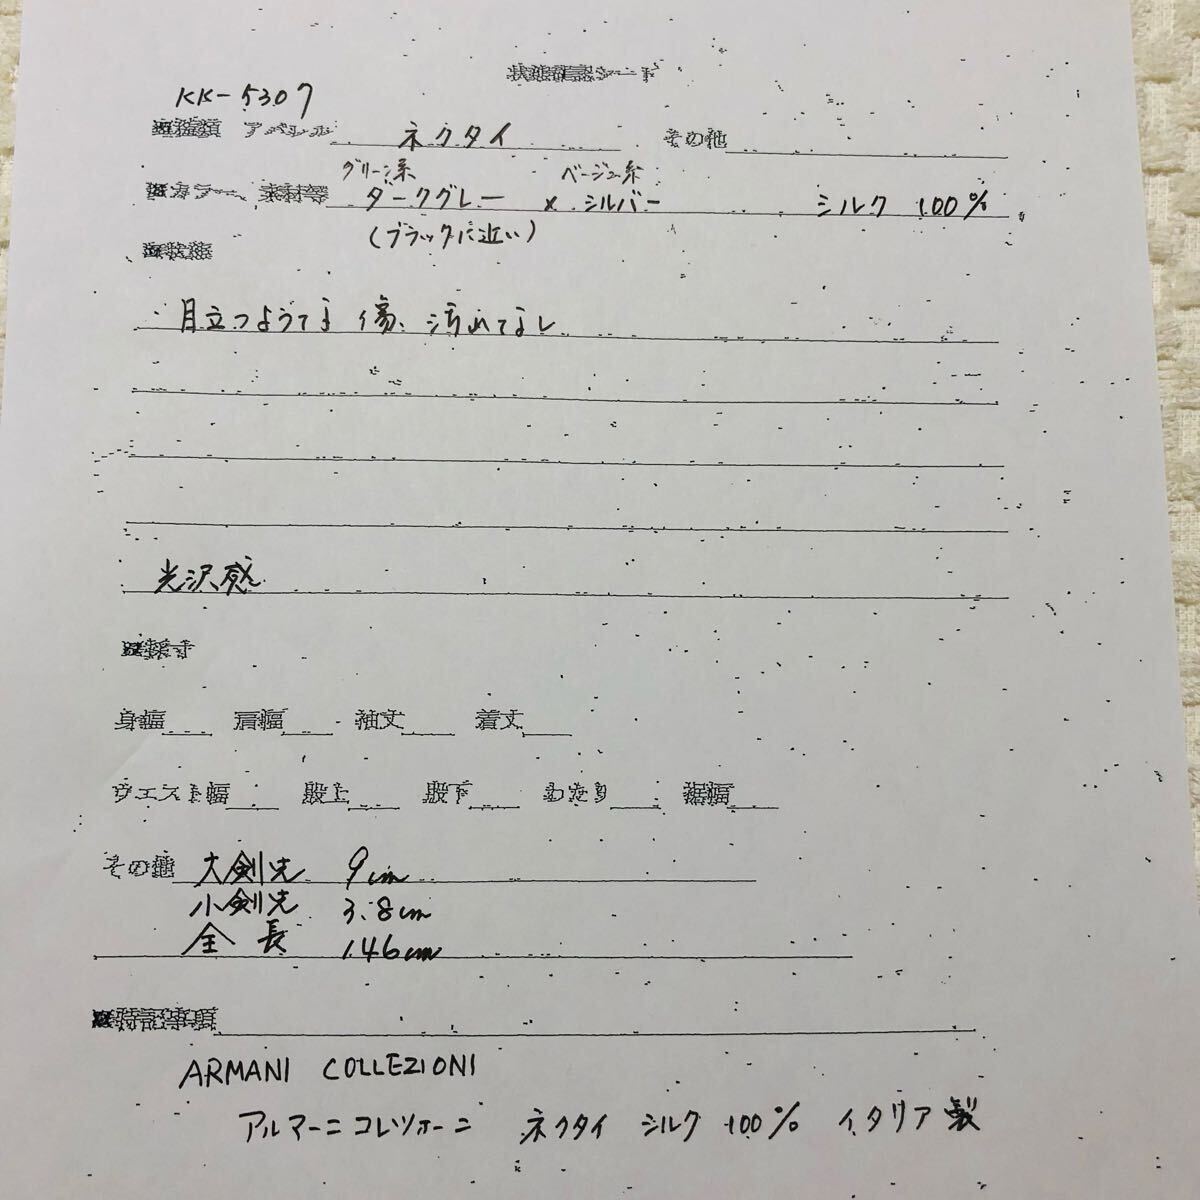 状態確認シート
KK-5307
※種類 アパレル ネクタイ その他
グリーン系 ベージュ系
※カラー、素材等 ダークグレー × シルバー シルク 100%
(ブラックに近い)
※状態
・目立つような傷、汚れなし
光沢感
※採寸
身幅 肩幅 袖丈 着丈
ウエスト幅 股上 股下 わたり 裾幅
その他 大剣先 9cm
小剣先 3.8cm
全長 146cm
※特記事項
ARMANI COLLEZIONI
アルマーニコレツォーニ ネクタイ シルク 100% イタリア製